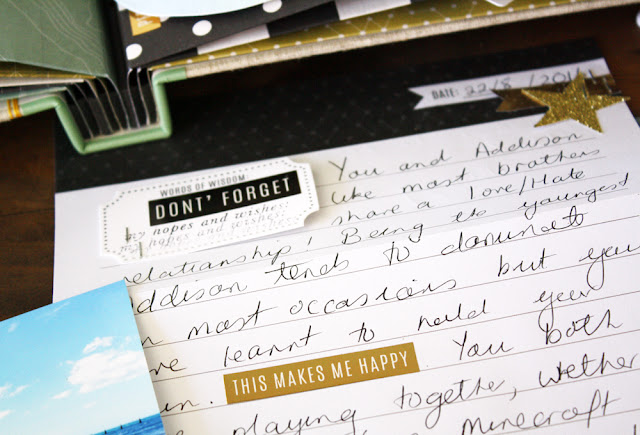 DATE: 22/8/2014
You and Addison
WORDS OF WISDOM
like most brothers
DONT' FORGET
share a love/Hate
my hopes and wishes:
hopes and wishes:
relationship! Being the youngest
Addison tends to dominate
on most occasions but you
learnt to hold your
THIS MAKES ME HAPPY
You both
playing together, wether
Minecraft